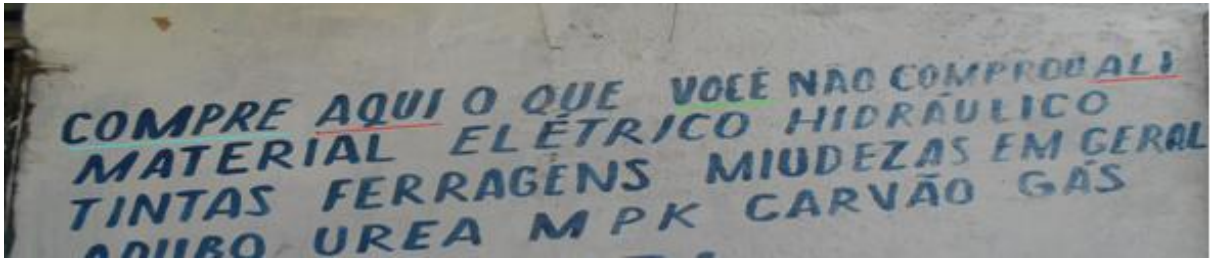 COMPRE AQUI O QUE VOCÊ NÃO COMPROU ALI
MATERIAL ELÉTRICO HIDRÁULICO
TINTAS FERRAGENS MIUDEZAS EM GERAL
ADUBO UREA MPK CARVÃO GÁS